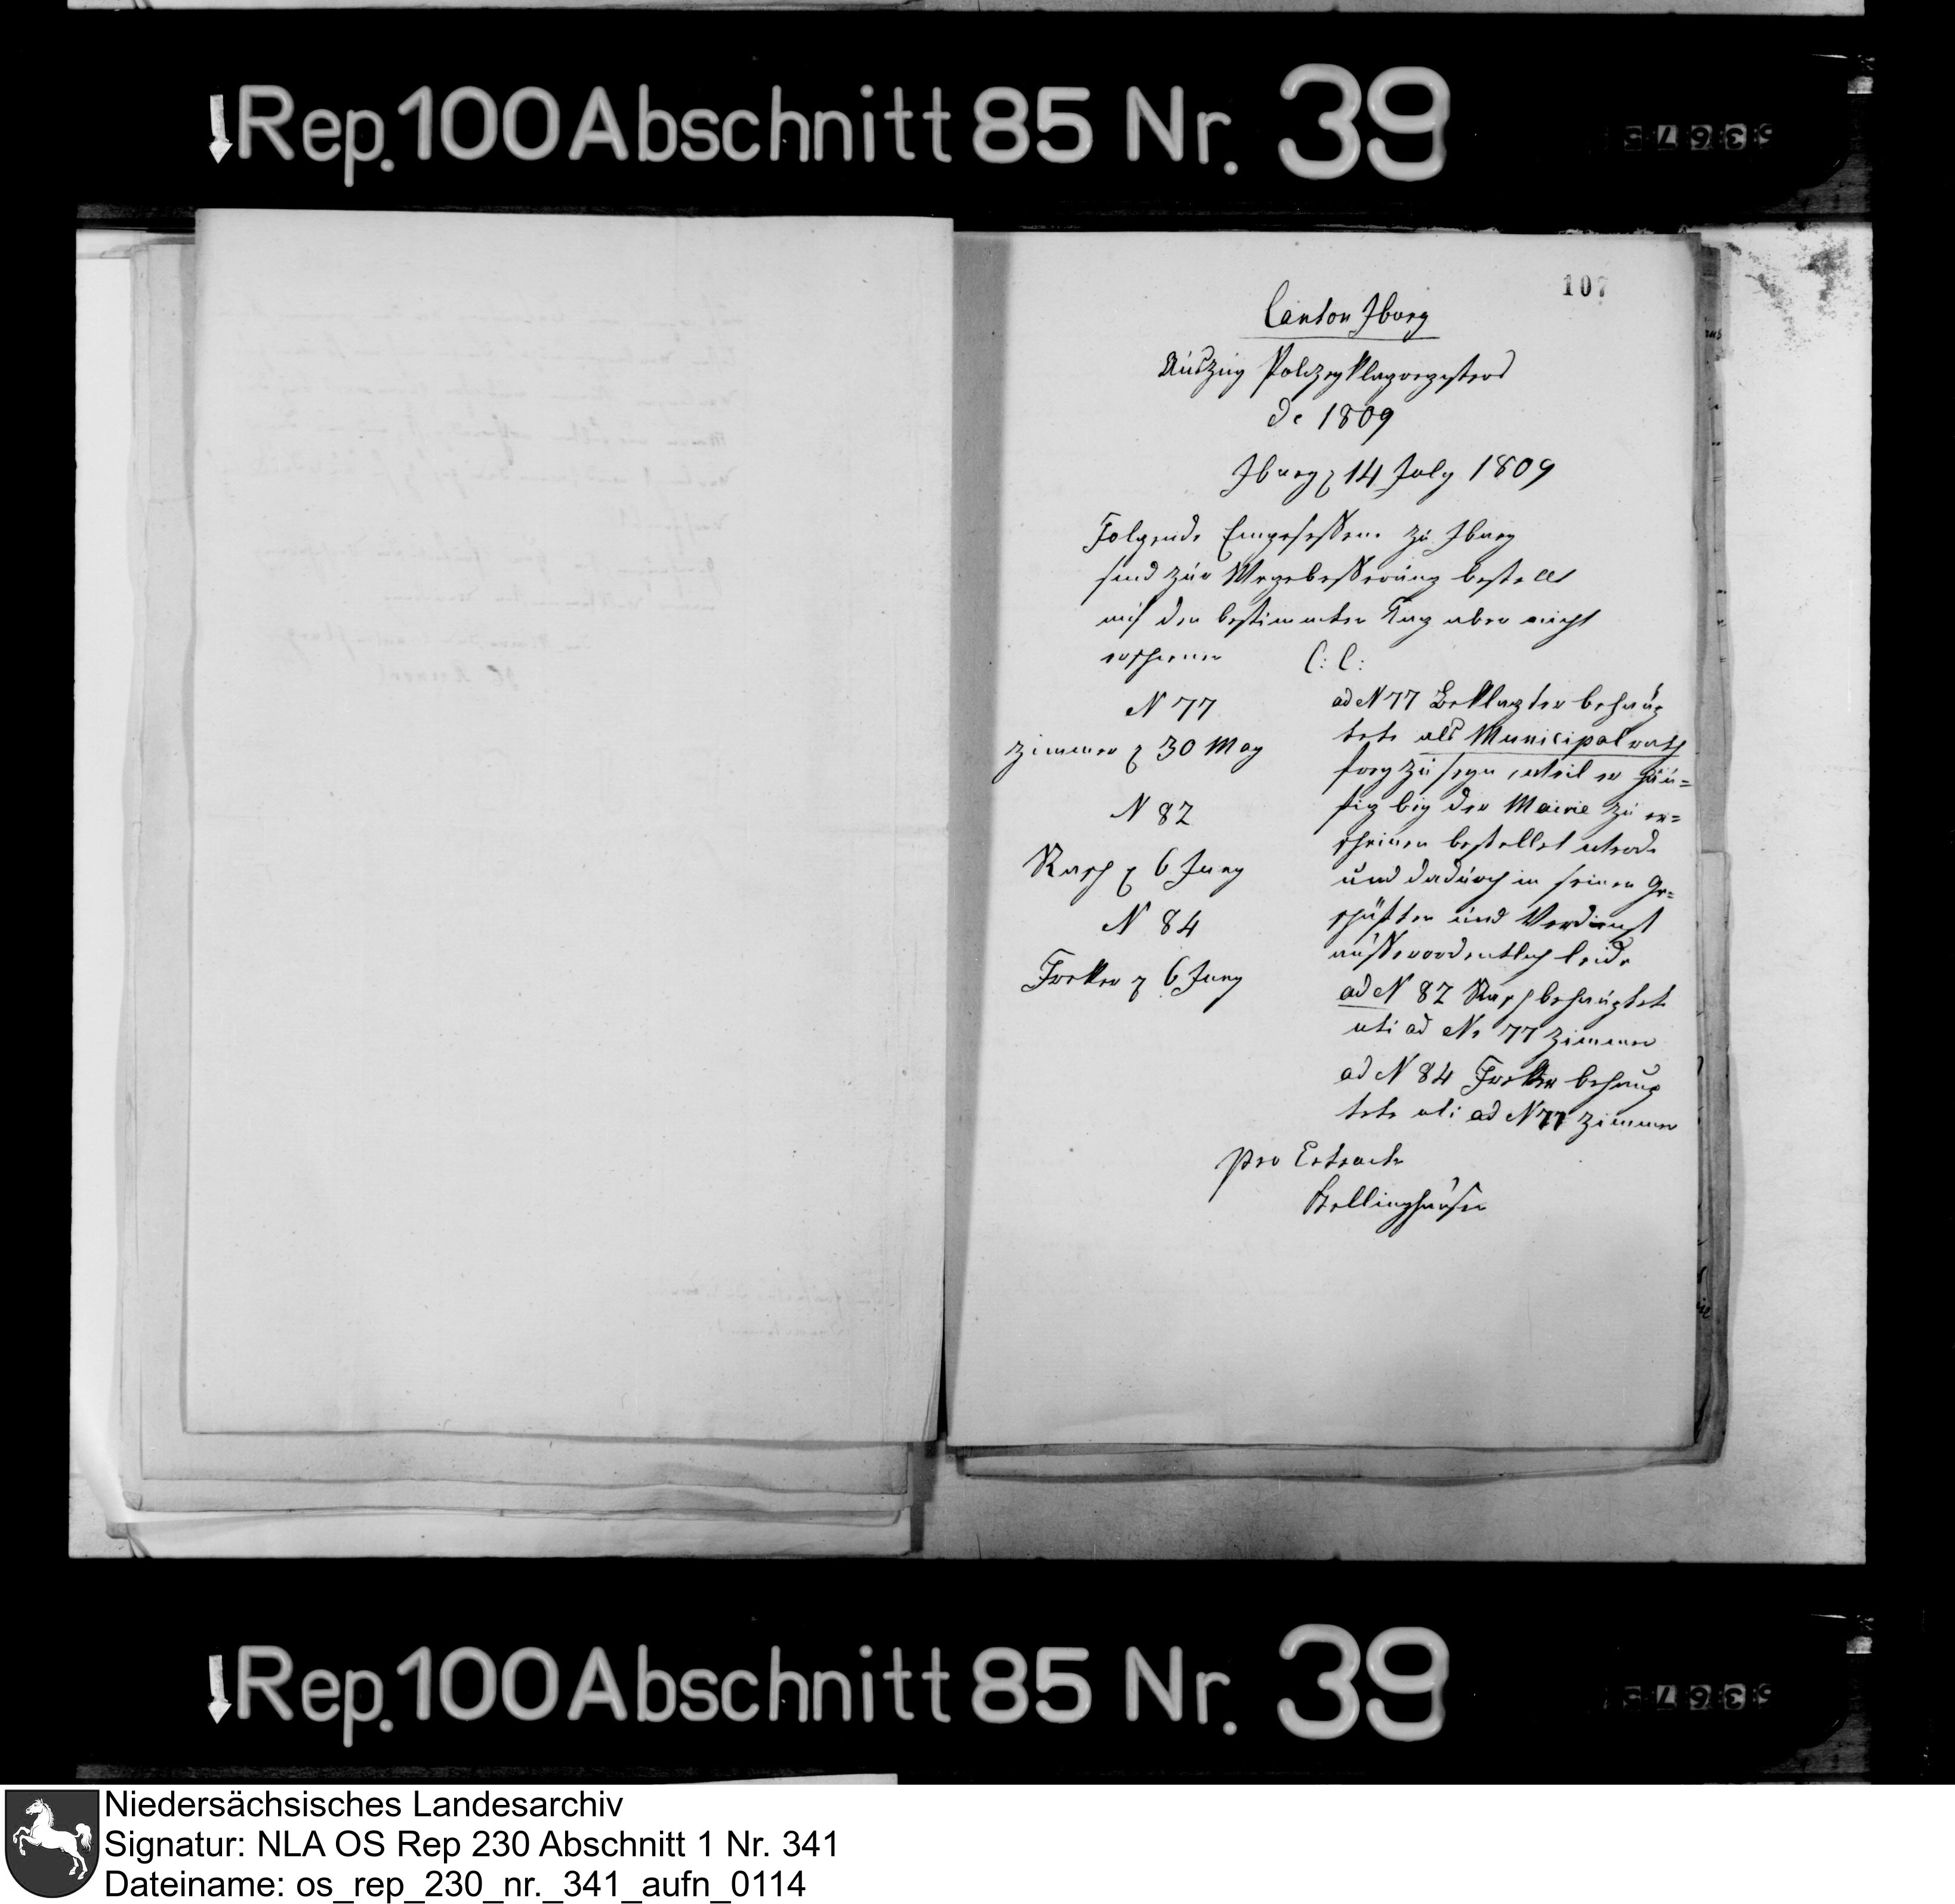 Rep. 100 Abschnitt 85 Nr. 39
107
Canton Iburg
Auszug Polizeyklagregisters
de 1809
Iburg 14 July 1809
Folgende Eingesessene zu Iburg
sind zur Wegebesserung bestellt
auf den bestimmten Tag aber nicht
erschienen
C: C:
N 77
Zimmer 30 May
N 82
6 Juny
N 84
6 Juny
ad N 77 Beklagter behaup
tete als Municipalrath
frey zu seyn, weil er häu=
fig bey der Mairie zu er=
scheinen bestellet werde
und dadurch in seinen Ge=
schäften und Verdienst
außerordentlich leide
ad N 82 behauptet
uti ad No 77 Zimmer
ad N 84 behaup
tete uti ad N 77 Zimmer
pro Extractu
Rep. 100 Abschnitt 85 Nr. 39
Niedersächsisches Landesarchiv
Signatur: NLA OS Rep 230 Abschnitt 1 Nr. 341
Dateiname: os_rep_230_nr._341_aufn_0114